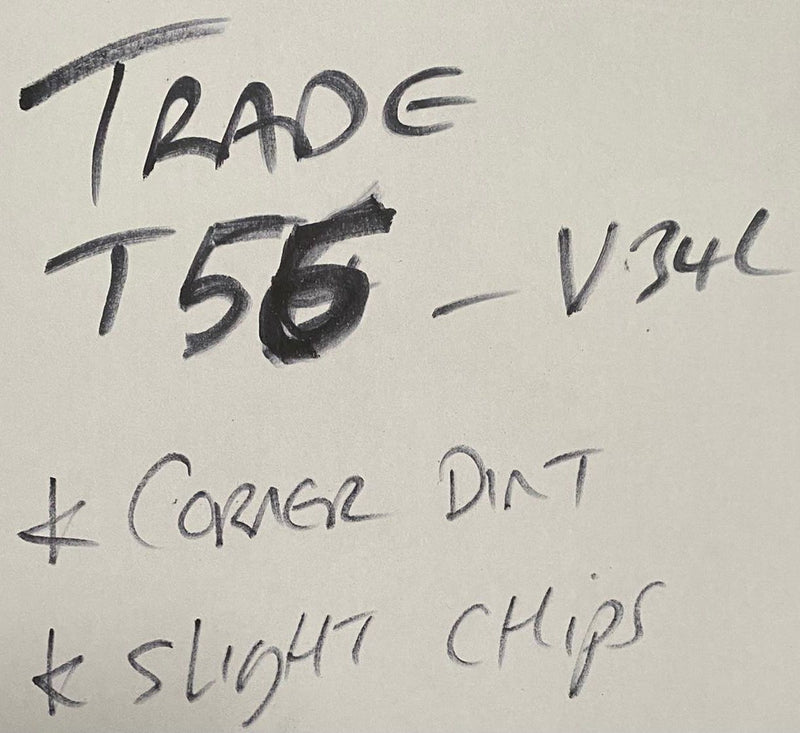 TRADE
T56 - V34L
* CORNER DINT
* SLIGHT CHIPS